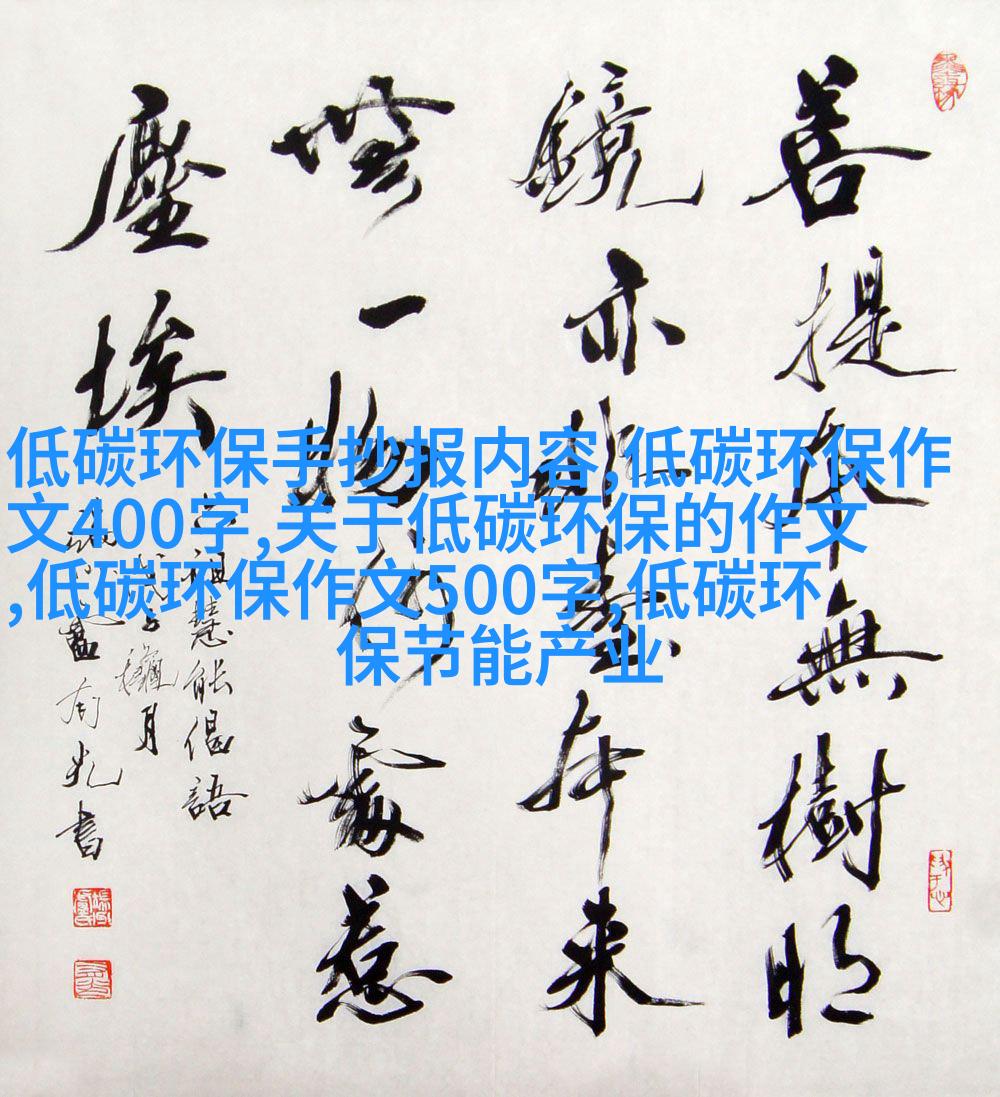 低碳环保手抄报内容,低碳环保作
文400字,关于低碳环保的作文
,低碳环保作文500字,低碳环
保节能产业
菩提本無樹明
鏡亦非臺本来
無一物何處惹
塵埃
六祖慧能偈語
子穐月
書